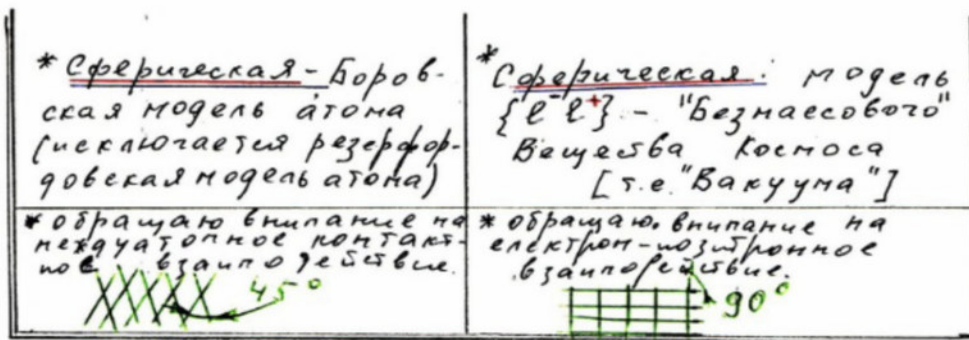 * Сферическая - Боров-
ская модель атома
(исключается резерфор-
довская модель атома)
* Сферическая: модель
{e⁻ e⁺} - "Безмассового"
Вещества Космоса
[т.е. "Вакуума"]
* обращаю внимание на
междуатомное контакт-
ное взаимодействие.
45°
* обращаю внимание на
електрон-позитронное
взаимодействие.
90°